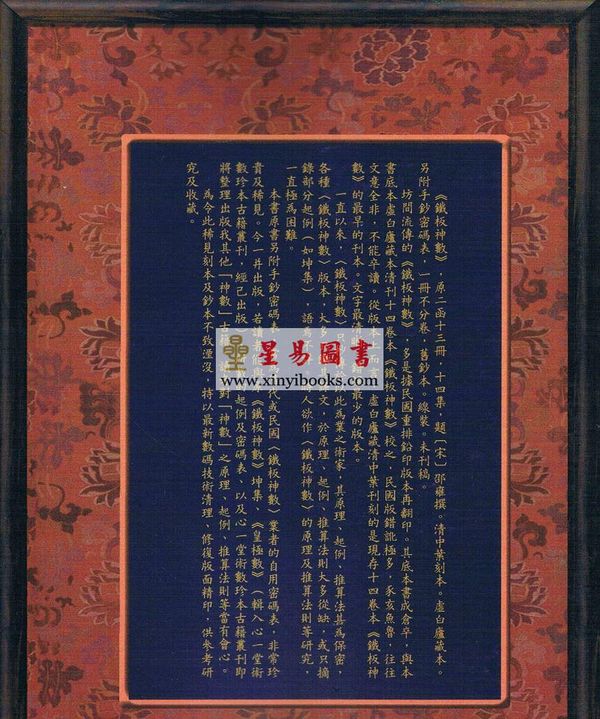 《鐵板神數》，原二函十三冊，十四集，題〔宋〕邵雍撰。清中葉刻本。虛白廬藏本。
另附手鈔密碼表，一冊不分卷，舊鈔本。線裝。未刊稿。
坊間流傳的《鐵板神數》，多是據民國重排鉛印版本再翻印。其底本書成倉卒，與本
書底本虛白廬藏本清刊十四卷本《鐵板神數》校之，民國版錯訛極多，豕亥魚魯，往往
文意全非，不能卒讀。從版本而言，虛白廬藏清中葉刊刻的是現存十四卷本《鐵板神
數》的最早的刊本。文字最清最少的版本。
一直以來，《鐵板神數》只以此為業之術家，其原理、起例、推算法甚為保密，
各種《鐵板神數》版本，大多條文，於原理、起例、推算法則大多從缺，或只摘
錄部分起例（如坤集），語焉不人欲作《鐵板神數》的原理及推算法則等研究，
一直極為困難。
本書原書另附手鈔密碼表代或民國《鐵板神數》業者的自用密碼表，非常珍
貴及稀見。今一并出版，若讀者《鐵板神數》坤集、《皇極數》（輯入心一堂術
數珍本古籍叢刊，經已出版）起例及密碼表、以及心一堂術數珍本古籍叢刊即
將整理出版我其他「神數」古籍對「神數」之原理、起例、推算法則等當有會心。
為令此稀見刻本及鈔本不致湮沒，特以最新數碼技術清理、修復版面精印，供參考研
究及收藏。
星易圖書
www.xinyibooks.com